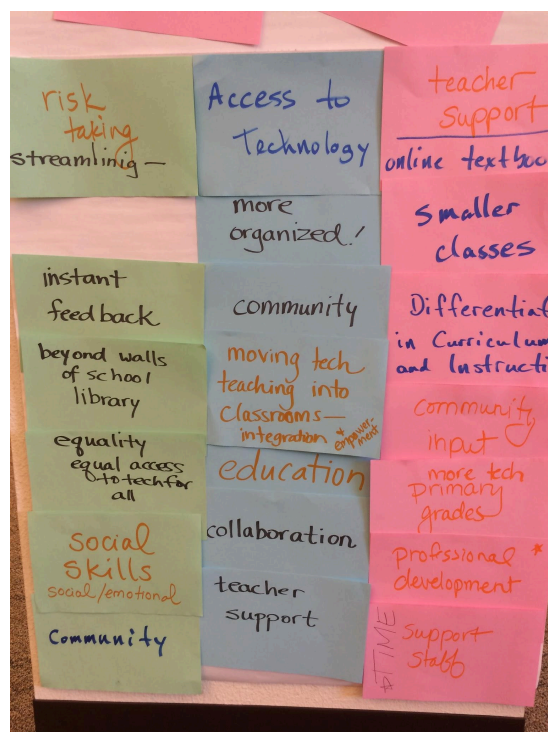 risk
taking
streamlinig —
instant
feedback
beyond walls
of school
library
equality
equal access
to tech for
all
social
skills
social/emotional
Community
Access to
Technology
more
organized!
community
moving tech
teaching into
Classrooms—
integration * empower-
ment
education
collaboration
teacher
support
teacher
support
online textboo
smaller
classes
Differentiat
in Curriculum
and Instructi
community
input
more tech
primary
grades
professional *
development
TIME
support
staff